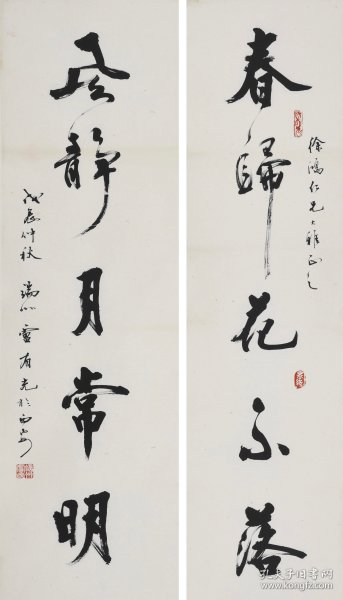 春歸花不落
徐鴻仁兄大雅正之
風靜月常明
戊辰仲秋 瑞
有光於西安
孔夫子旧书网